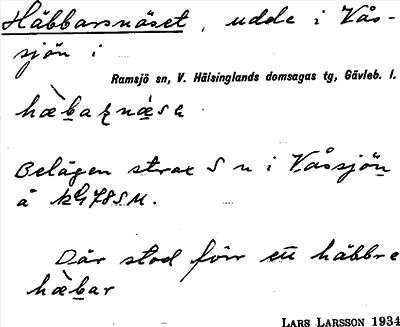 Häbbarsnäset, udde i Vås-
sjön i
Ramsjö sn, V. Hälsinglands domsagas tg, Gävleb. l.
hæ̀baʀnæ̀sə
Belägen strax S n i Våssjön
å
Där stod förr ett häbbre
hæ̀bar
LARS LARSSON 1934